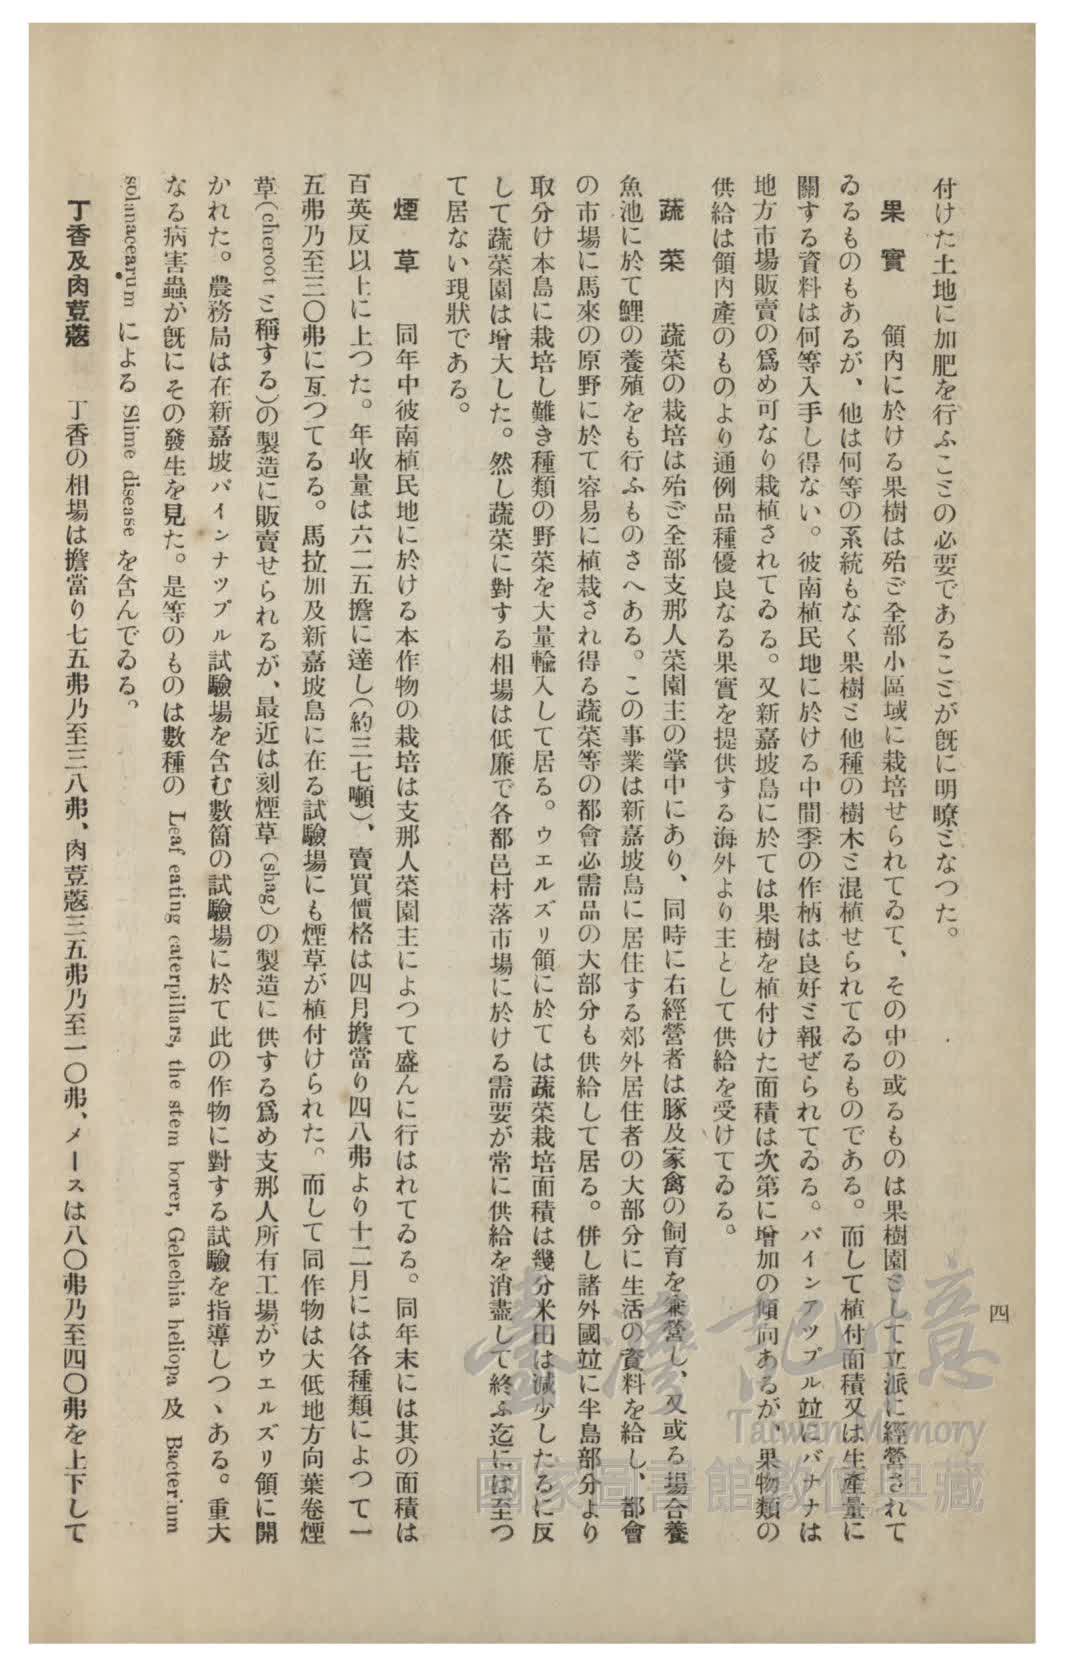 四
付けた土地に加肥を行ふことの必要であることが既に明瞭となつた。
果實 領內に於ける果樹は殆ど全部小區域に栽培せられてゐて、その中の或るものは果樹園として立派に經營されて
ゐるものもあるが、他は何等の系統もなく果樹と他種の樹木と混植せられてゐるものである。而して植付面積又は生產量に
關する資料は何等入手し得ない。彼南植民地に於ける中間季の作柄は良好と報ぜられてゐる。パインアツプル竝にバナナは
地方市場販賣の爲め可なり栽植されてゐる。又新嘉坡島に於ては果樹を植付けた面積は次第に增加の傾向あるが、果物類の
供給は領內產のものより通例品種優良なる果實を提供する海外より主として供給を受けてゐる。
蔬菜 蔬菜の栽培は殆ど全部支那人菜園主の掌中にあり、同時に右經營者は豚及家禽の飼育を兼營し、又或る場合養
魚池に於て鯉の養殖をも行ふものさへある。この事業は新嘉坡島に居住する郊外居住者の大部分に生活の資料を給し、都會
の市場に馬來の原野に於て容易に植栽され得る蔬菜等の都會必需品の大部分も供給して居る。併し諸外國竝に半島部分より
取分け本島に栽培し難き種類の野菜を大量輸入して居る。ウエルズリ領に於ては蔬菜栽培面積は幾分米田は減少したるに反
して蔬菜園は增大した。然し蔬菜に對する相場は低廉で各都邑村落市場に於ける需要が常に供給を消盡して終ふ迄には至つ
て居ない現狀である。
煙草 同年中彼南植民地に於ける本作物の栽培は支那人菜園主によつて盛んに行はれてゐる。同年末には其の面積は
百英反以上に上つた。年收量は六二五擔に達し(約三七噸)、賣買價格は四月擔當り四八弗より十二月には各種類によつて一
五弗乃至三〇弗に亙つてゐる。馬拉加及新嘉坡島に在る試驗場にも煙草が植付けられた。而して同作物は大低地方向葉卷煙
草(cherootと稱する)の製造に販賣せられるが、最近は刻煙草(shag)の製造に供する爲め支那人所有工場がウエルズリ領に開
かれた。農務局は在新嘉坡パインナツプル試驗場を含む數箇の試驗場に於て此の作物に對する試驗を指導しつゝある。重大
なる病害蟲か既にその發生を見た。是等のものは數種の Leaf eating caterpillars, the stem borer, Gelechia heliopa 及 Bacterium
solanacearum による Slime disease を含んでゐる。
丁香及肉荳蔲 丁香の相場は擔當り七五弗乃至三八弗、肉荳蔲三五弗乃至一〇弗、メースは八〇弗乃至四〇弗を上下して
臺灣記憶
Taiwan Memory
國家圖書館數位典藏